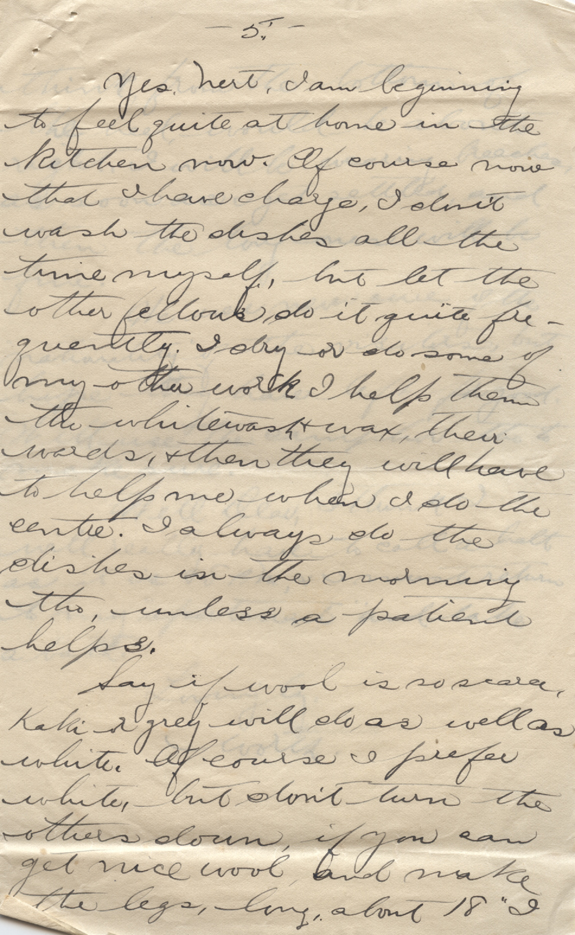 - 5. -
Yes, Nert, I am beginning
to feel quite at home in the
kitchen now. Of course now
that I have charge, I don't
wash the dishes all the
time myself, but let the
other fellows do it quite fre-
quently. I dry or do some of
my other work I help them
the whitewash + wax, their
wards, + then they will have
to help me when I do the
centre. I always do the
dishes in the morning
tho, unless a patient
helps.
Say if wool is so scarce,
Kaki or grey will do as well as
white. Of course I prefer
white, but don't turn the
others down, if you can
get nice wool, and make
the legs, long, about 18" I